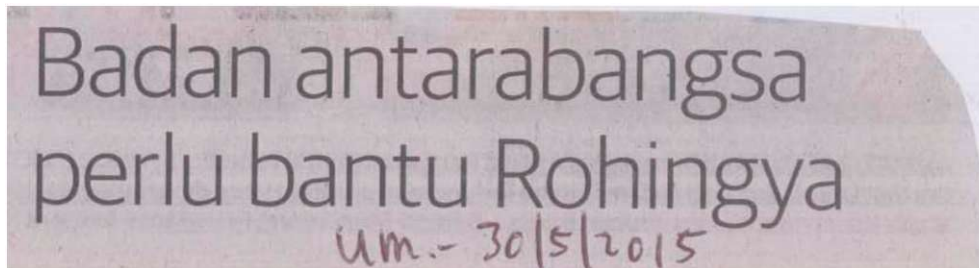 Badan antarabangsa
perlu bantu Rohingya
um.- 30/5/2015